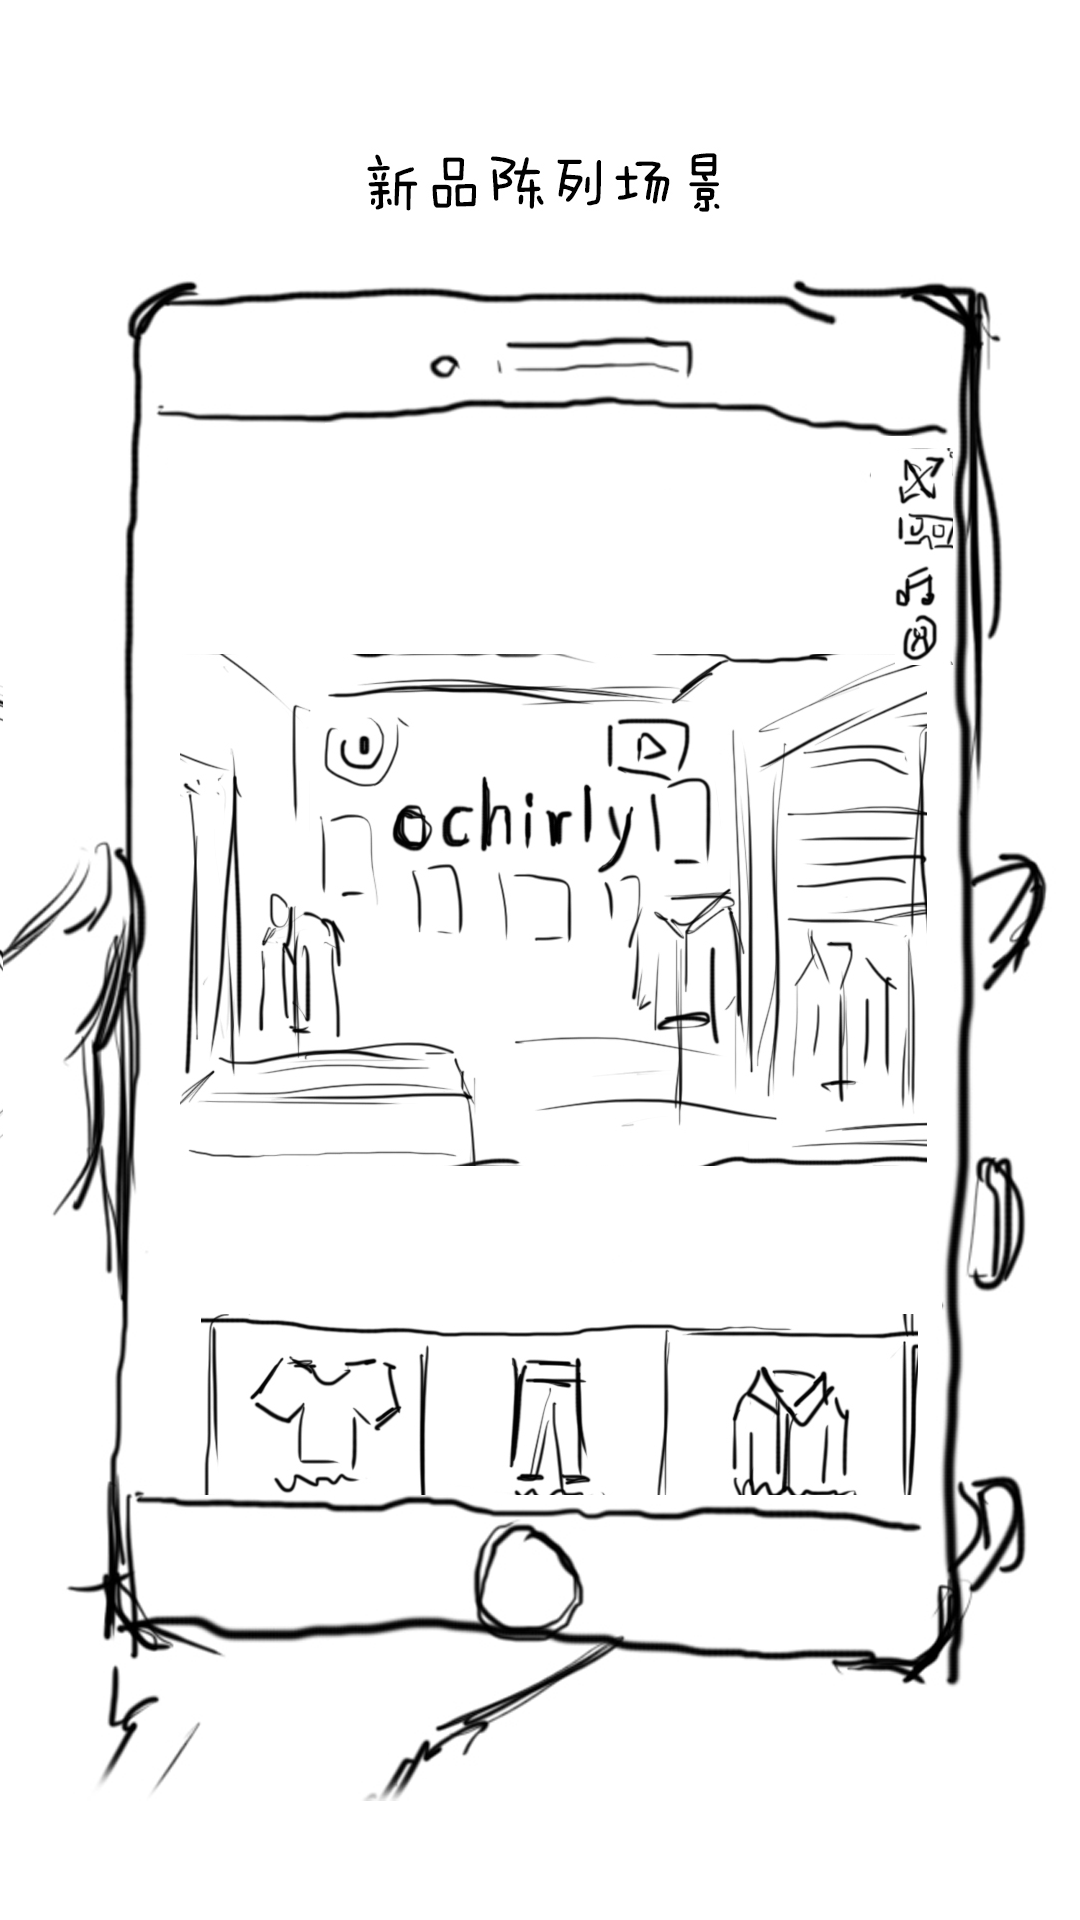 新品陈列场景
ochirly